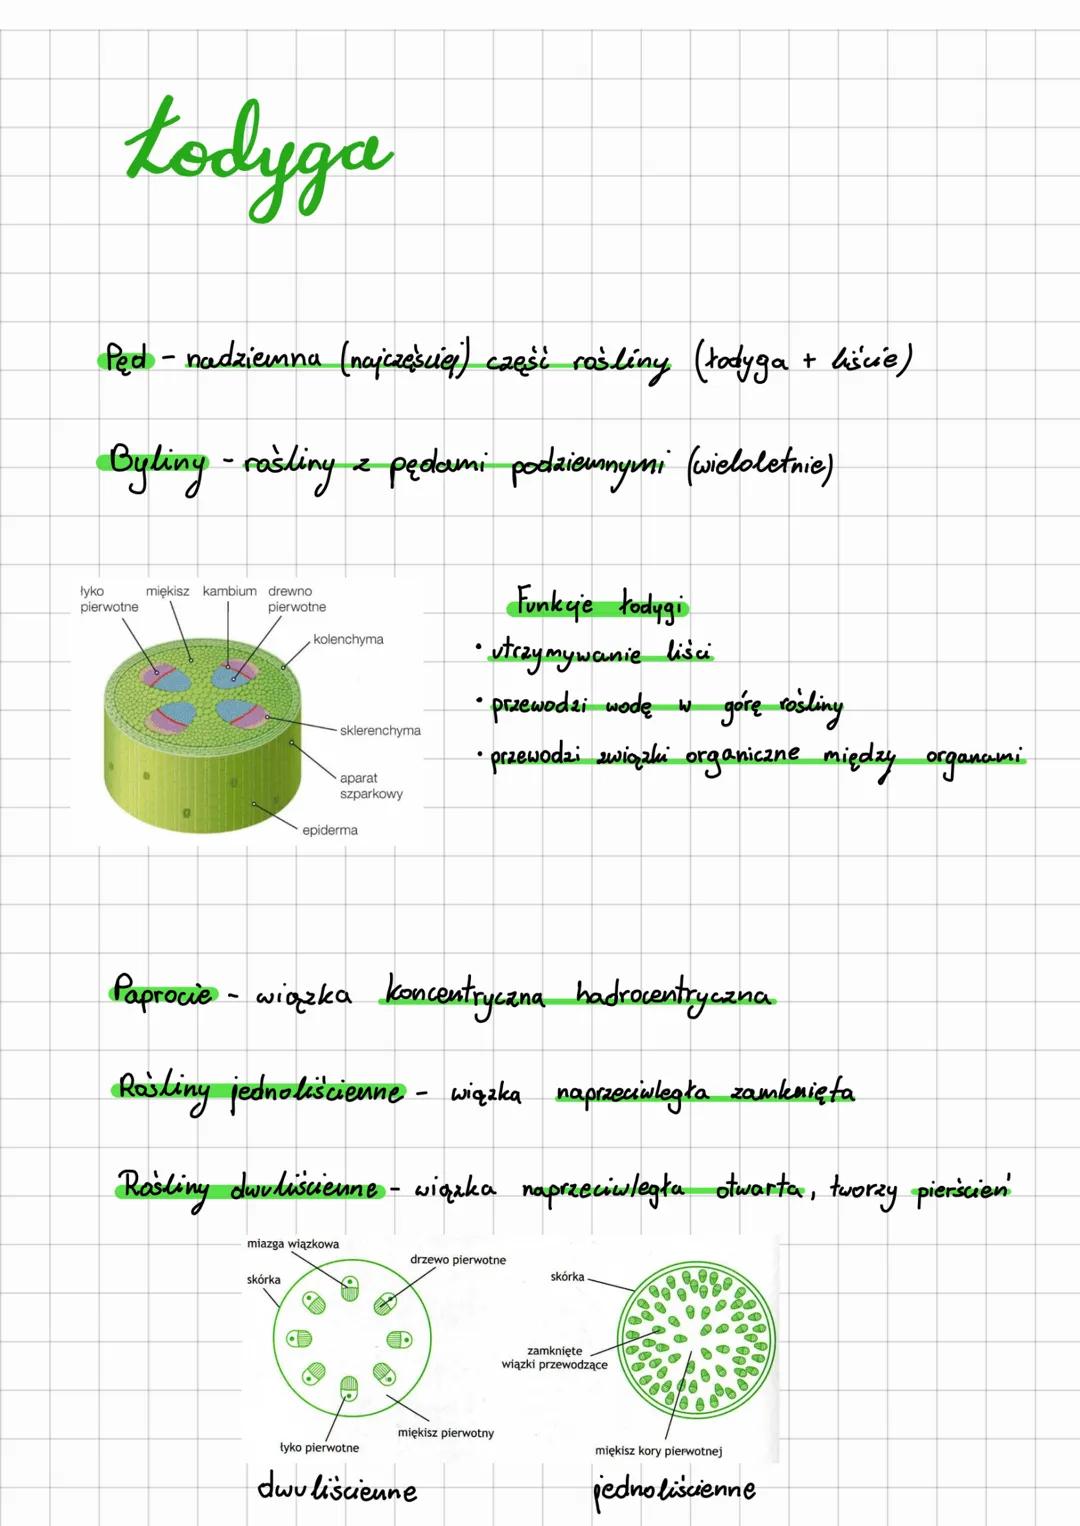 Łodyga
Pęd - nadziemna (najczęściej) część rośliny (łodyga + liście)
Byliny - rośliny z pędami podziemnymi (wieloletnie)
łyko pierwotne
miękisz
kambium
drewno pierwotne
kolenchyma
sklerenchyma
aparat szparkowy
epiderma
Funkcje łodygi
• utrzymywanie liści
• przewodzi wodę w górę rośliny
• przewodzi związki organiczne między organami
Paprocie - wiązka koncentryczna hadrocentryczna
Rośliny jednoliścienne - wiązka naprzeciwległa zamknięta
Rośliny dwuliścienne - wiązka naprzeciwległa otwarta, tworzy pierścień
miazga wiązkowa
drzewo pierwotne
skórka
łyko pierwotne
miękisz pierwotny
dwuliścienne
skórka
zamknięte
wiązki przewodzące
miękisz kory pierwotnej
jednoliścienne